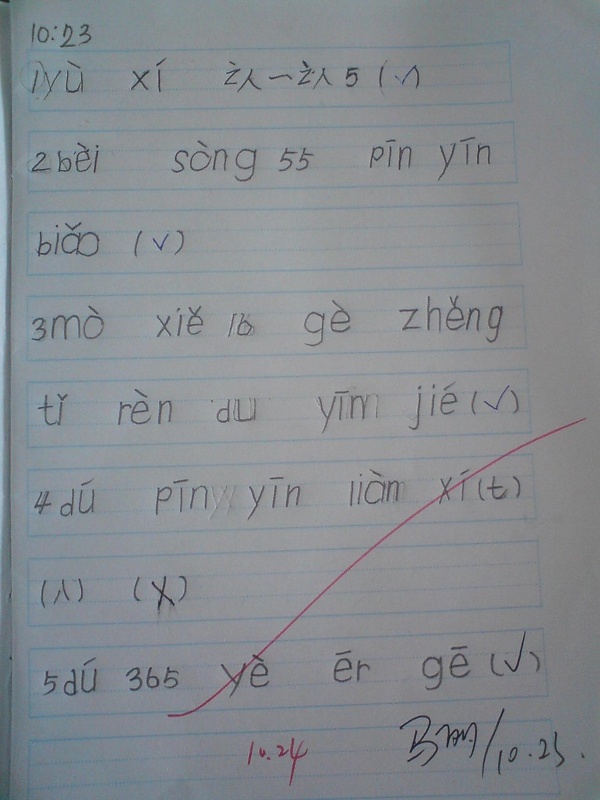 10:23
1yù xí 认一认5(√)
2bèi sòng 55 pīn yīn
biǎo (√)
3mò xiě 16 gè zhěng
tǐ rèn du yīm jié(√)
4dú pīny yīn liàm xí(七)
(八) (X)
5dú 365 yè ēr gē(√)
10.24 /10.23.